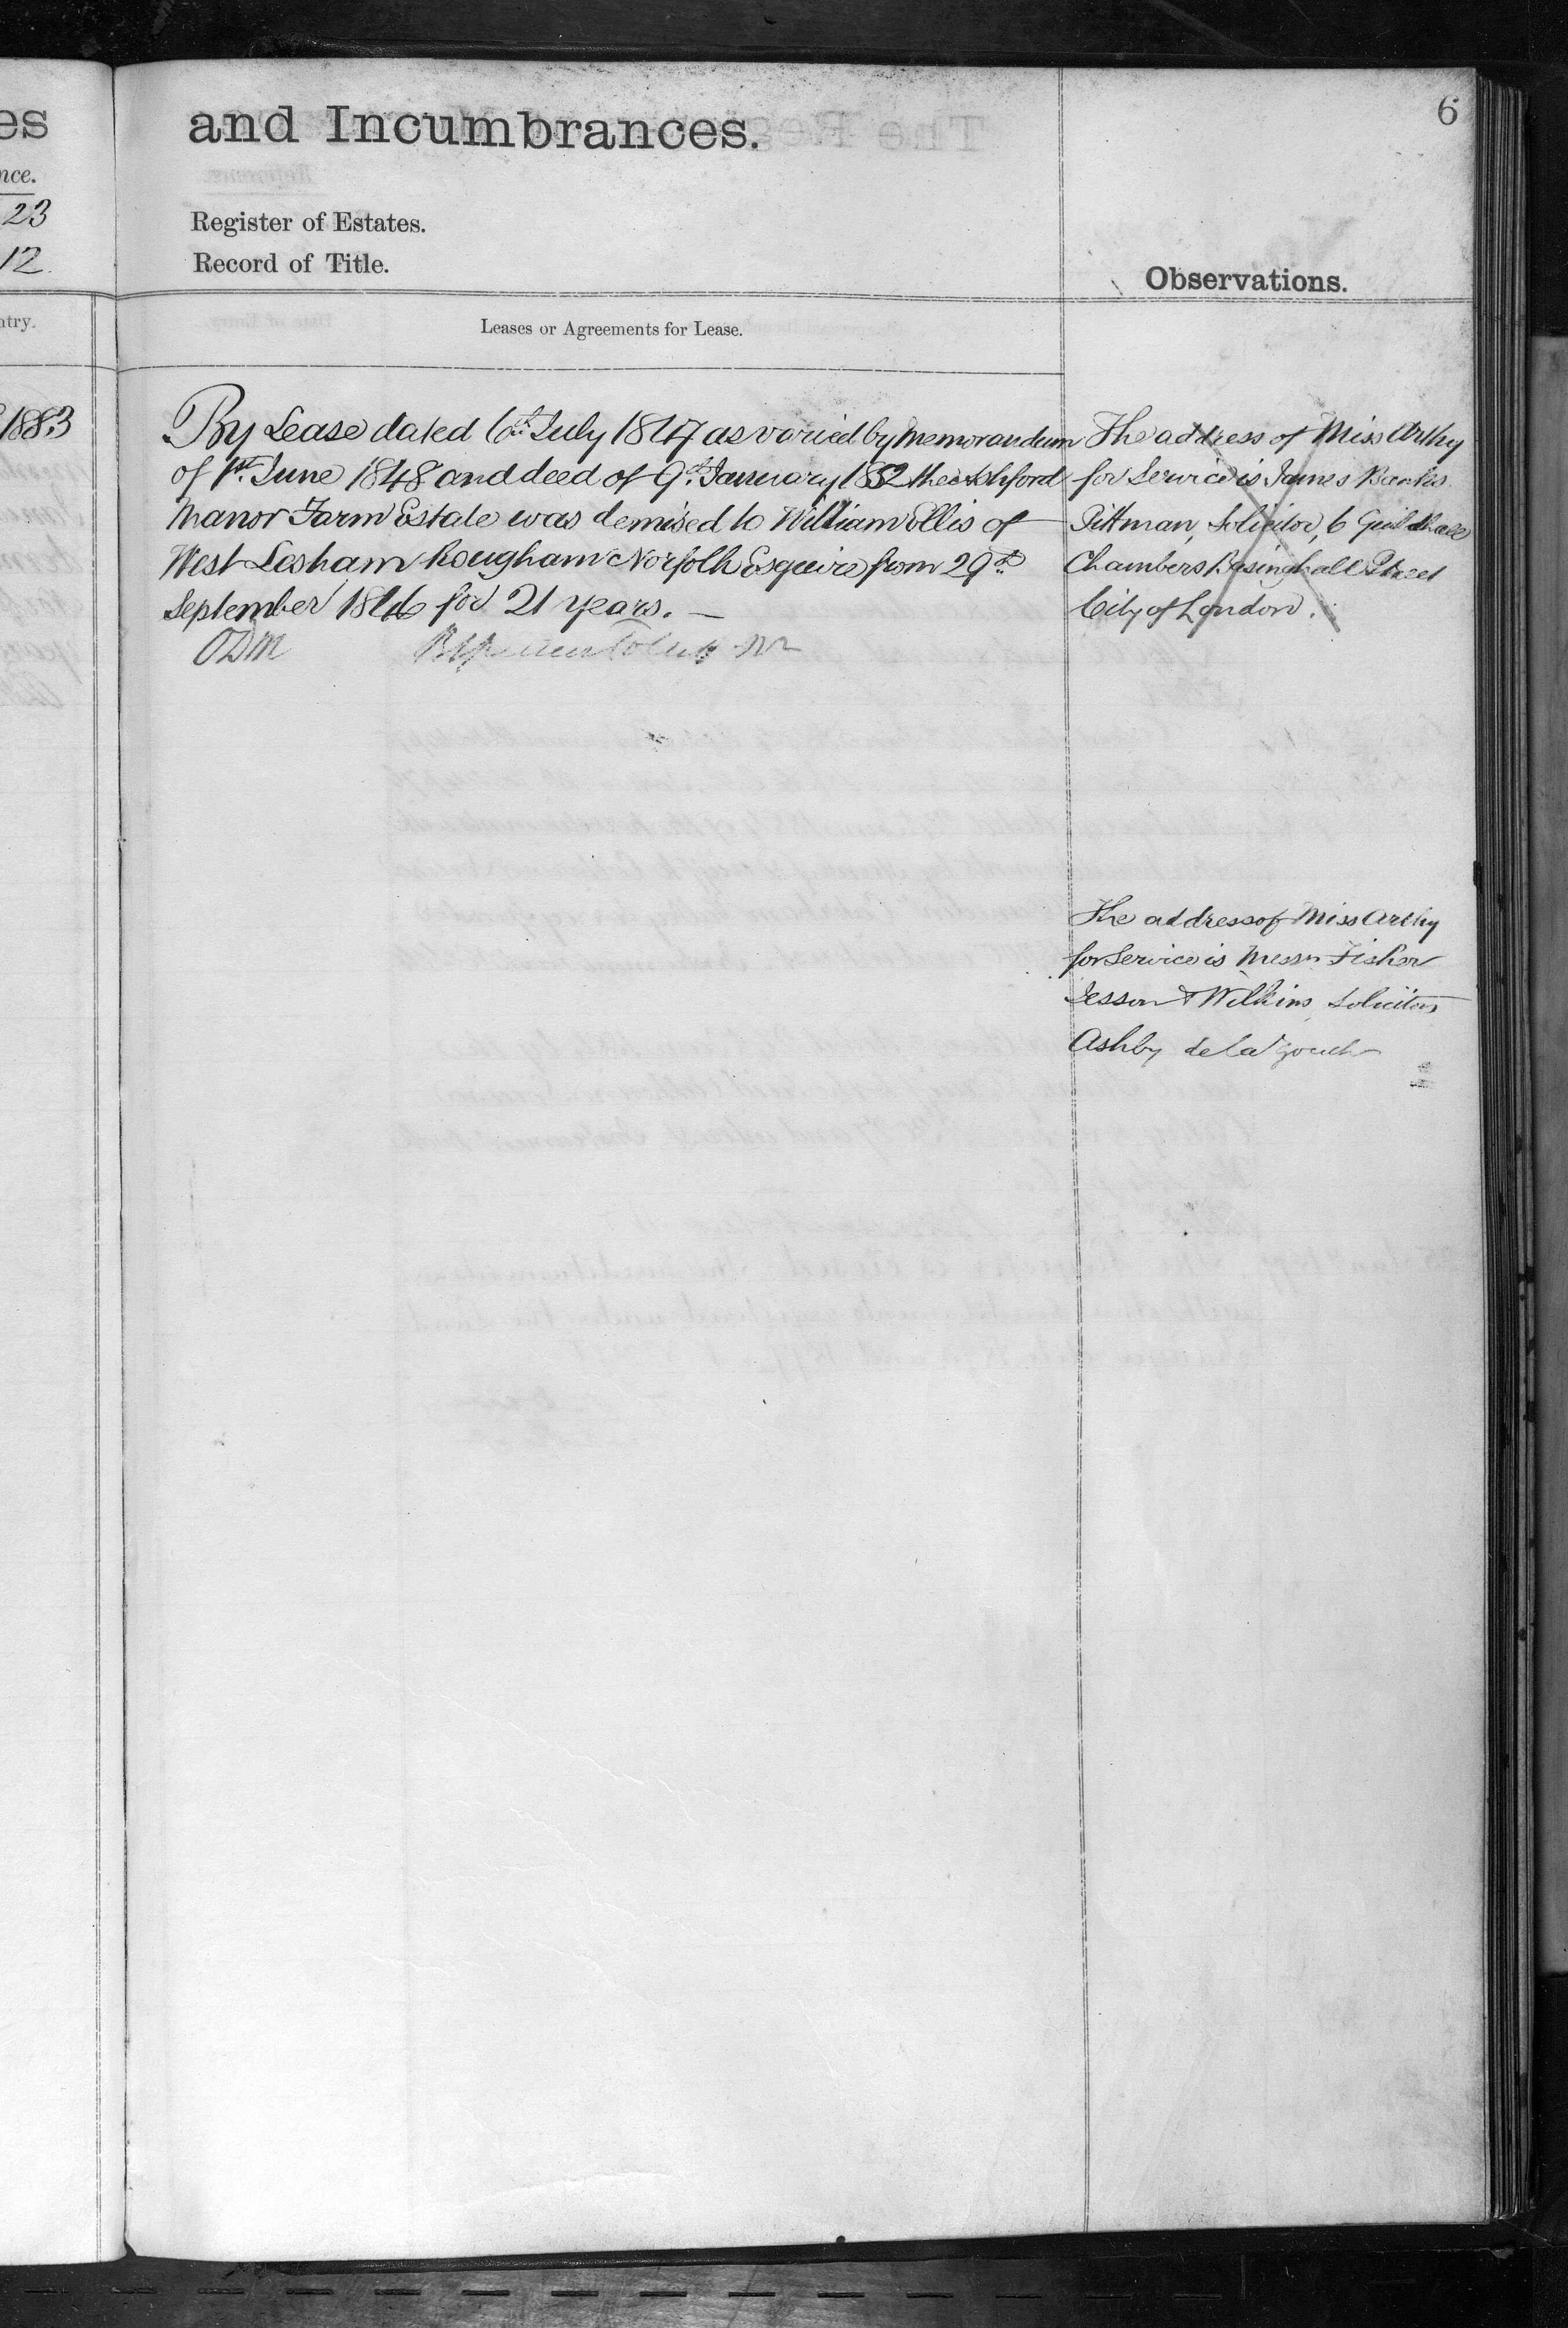 es
nce.
23
12
ntry.
1883
and Incumbrances.
6
Register of Estates.
Record of Title.
Observations.
Leases or Agreements for Lease.
By Lease dated 6th July 1847 as varied by Memorandum
of 1st June 1848 and deed of 9th January 1852 the Ashford
Manor Farm Estate was demised to William Ellis of
West Lesham Rougham Norfolk Esquire from 29th
September 1846 for 21 years. —
ODM
The address of Miss Arthy
for Service is James Banks
Pittman, Solicitor, 6 Guildhall
Chambers Basinghall Street
City of London.
The address of Miss Arthy
for Service is Messrs Fisher
Jesson & Wilkins, Solicitors
Ashby de la Zouch